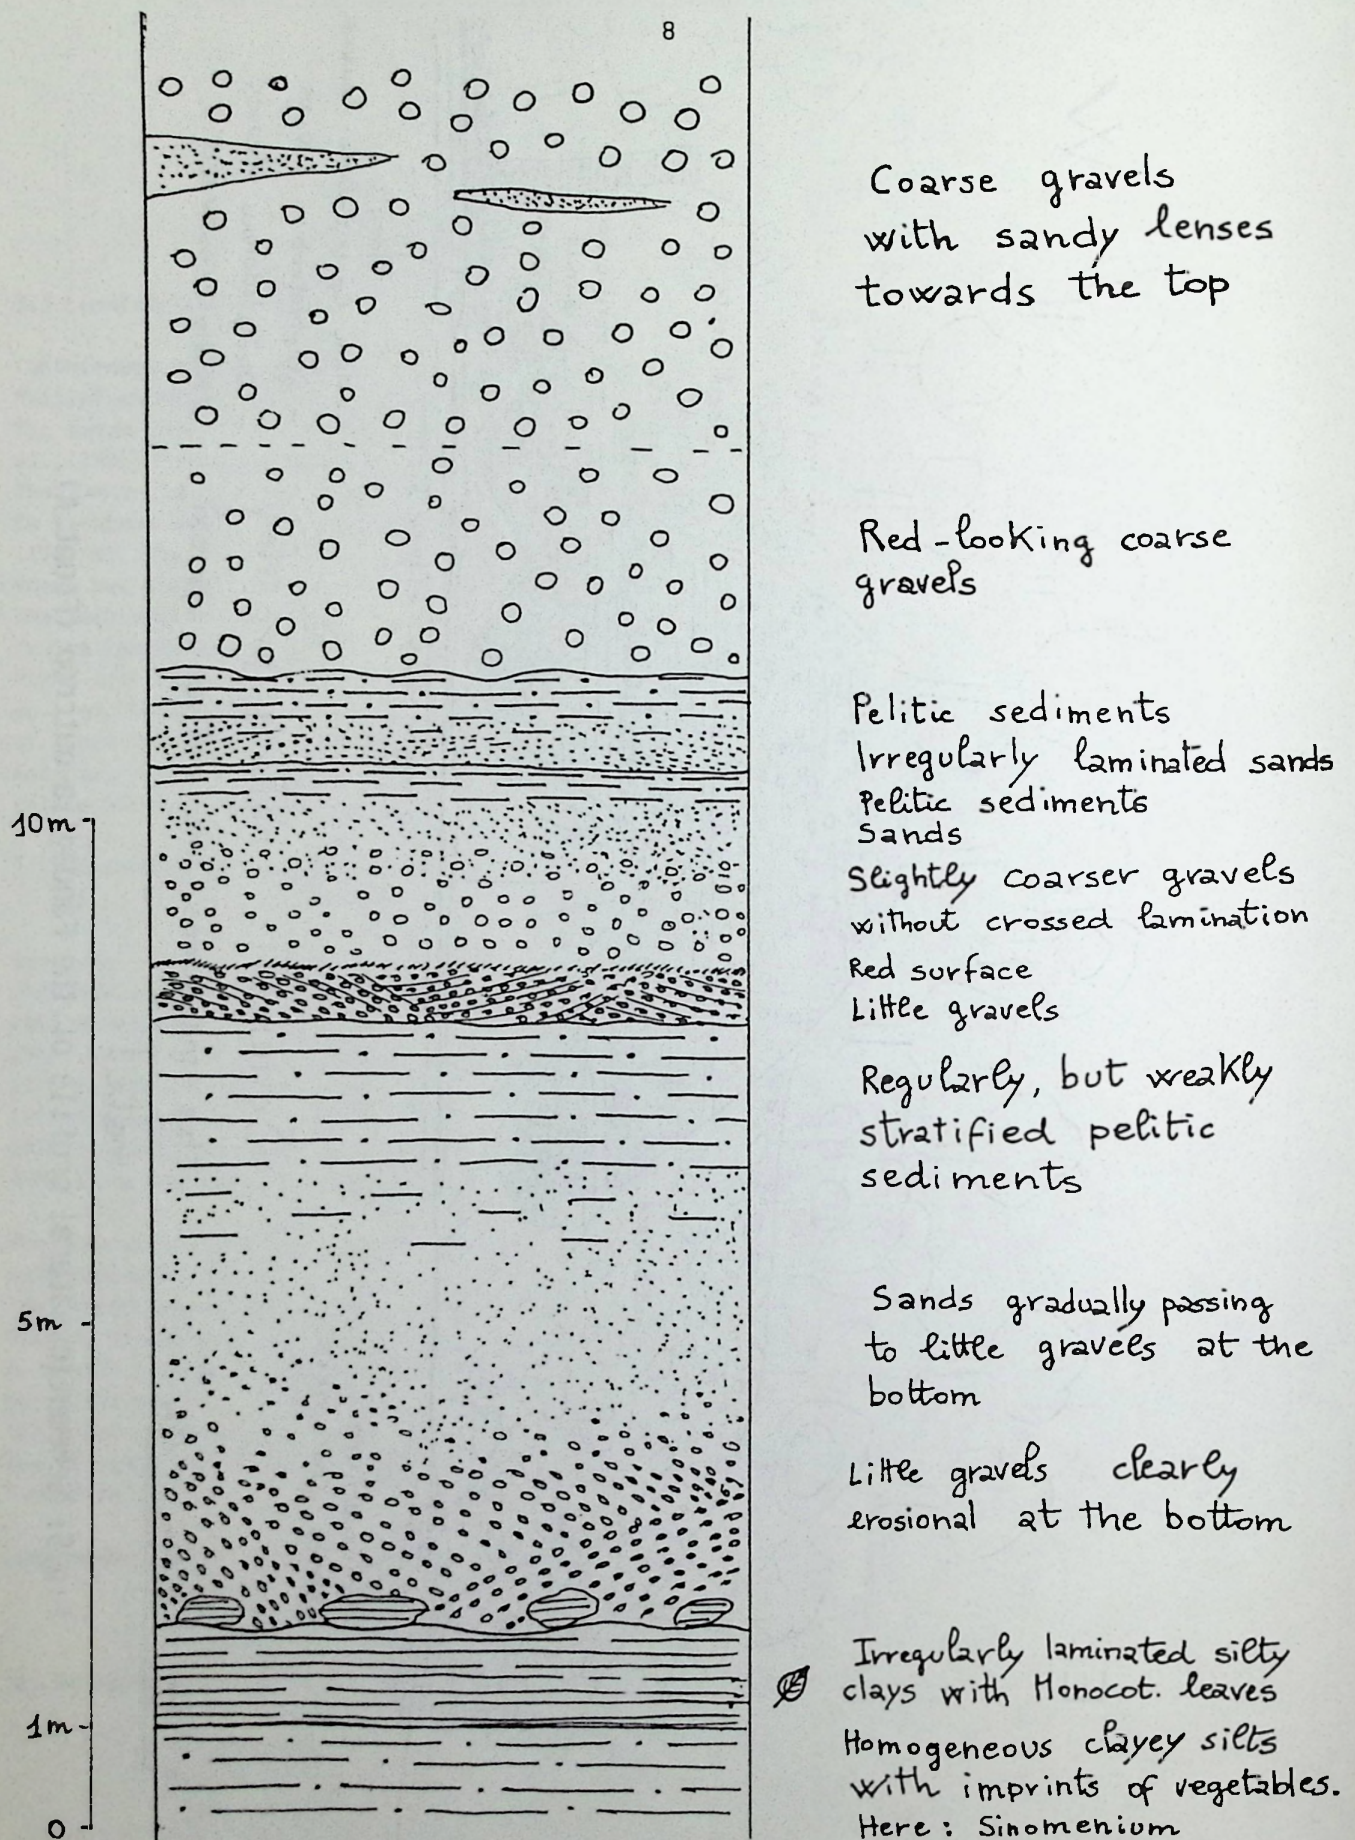 8
Coarse gravels
with sandy lenses
towards the top
Red-looking coarse
gravels
Pelitic sediments
Irregularly laminated sands
Pelitic sediments
10m
Sands
Slightly coarser gravels
without crossed lamination
Red surface
Little gravels
Regularly, but weakly
stratified pelitic
sediments
5m
Sands gradually passing
to little gravels at the
bottom
Little gravels clearly
erosional at the bottom
Irregularly laminated silty
clays with Monocot. leaves
1m
Homogeneous clayey silts
with imprints of vegetables.
Here: Sinomenium
0